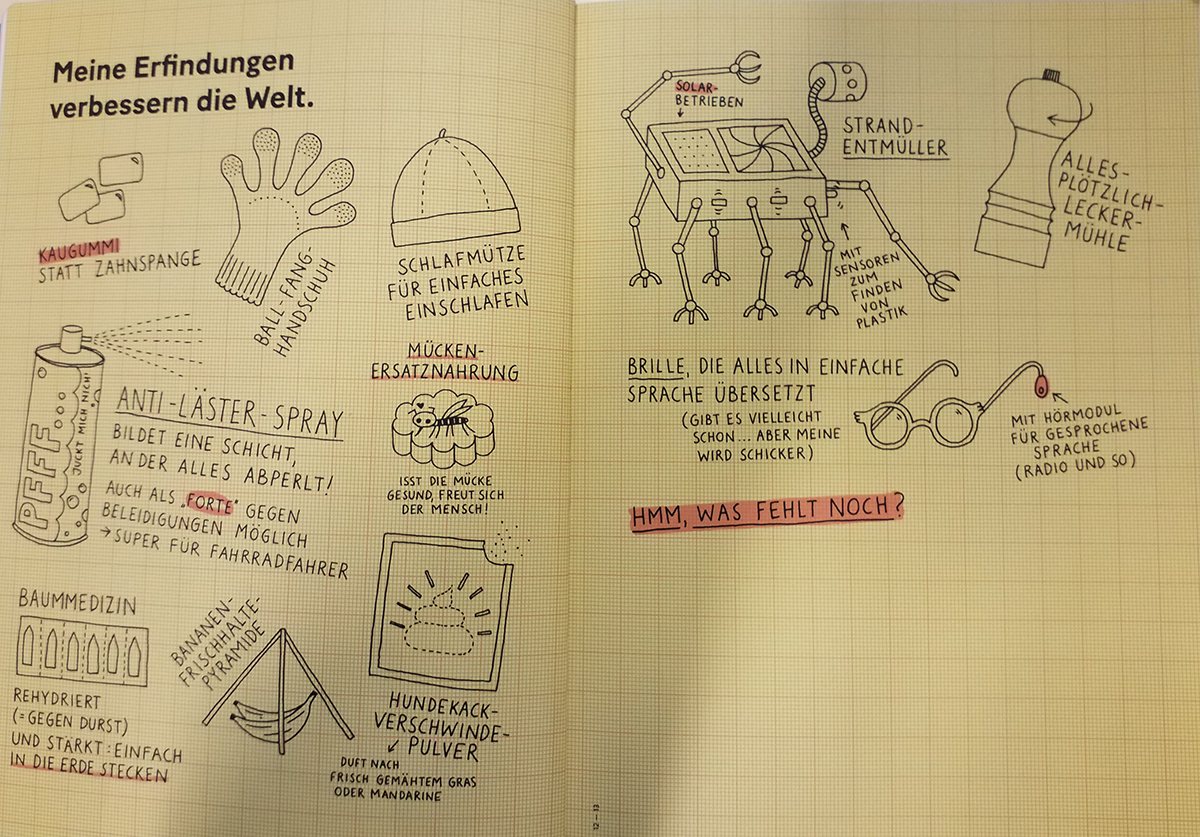 Meine Erfindungen
verbessern die Welt.
KAUGUMMI
STATT ZAHNSPANGE
BALL-FANG-
HANDSCHUH
SCHLAFMÜTZE
FÜR EINFACHES
EINSCHLAFEN
PFFF
JUCKT MICH NICH!
ANTI-LÄSTER-SPRAY
BILDET EINE SCHICHT,
AN DER ALLES ABPERLT!
AUCH ALS „FORTE“ GEGEN
BELEIDIGUNGEN MÖGLICH
→ SUPER FÜR FAHRRADFAHRER
MÜCKEN-
ERSATZNAHRUNG
ISST DIE MÜCKE
GESUND, FREUT SICH
DER MENSCH!
BAUMMEDIZIN
REHYDRIERT
(=GEGEN DURST)
UND STÄRKT: EINFACH
IN DIE ERDE STECKEN
BANANEN-
FRISCHHALTE-
PYRAMIDE
HUNDEKACK-
VERSCHWINDE-
PULVER
DUFT NACH
FRISCH GEMÄHTEM GRAS
ODER MANDARINE
SOLAR-
BETRIEBEN
STRAND-
ENTMÜLLER
MIT
SENSOREN
ZUM
FINDEN
VON
PLASTIK
ALLES-
PLÖTZLICH-
LECKER-
MÜHLE
BRILLE, DIE ALLES IN EINFACHE
SPRACHE ÜBERSETZT
(GIBT ES VIELLEICHT
SCHON... ABER MEINE
WIRD SCHICKER)
MIT HÖRMODUL
FÜR GESPROCHENE
SPRACHE
(RADIO UND SO)
HMM, WAS FEHLT NOCH?
12 — 13